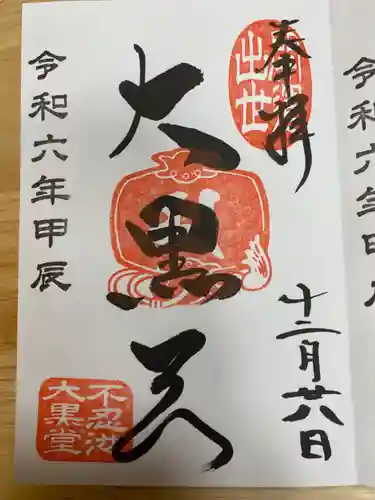 奉拝
出世
大黒天
十二月廿八日
令和六年甲辰
不忍池
大黒堂
令和六年甲辰